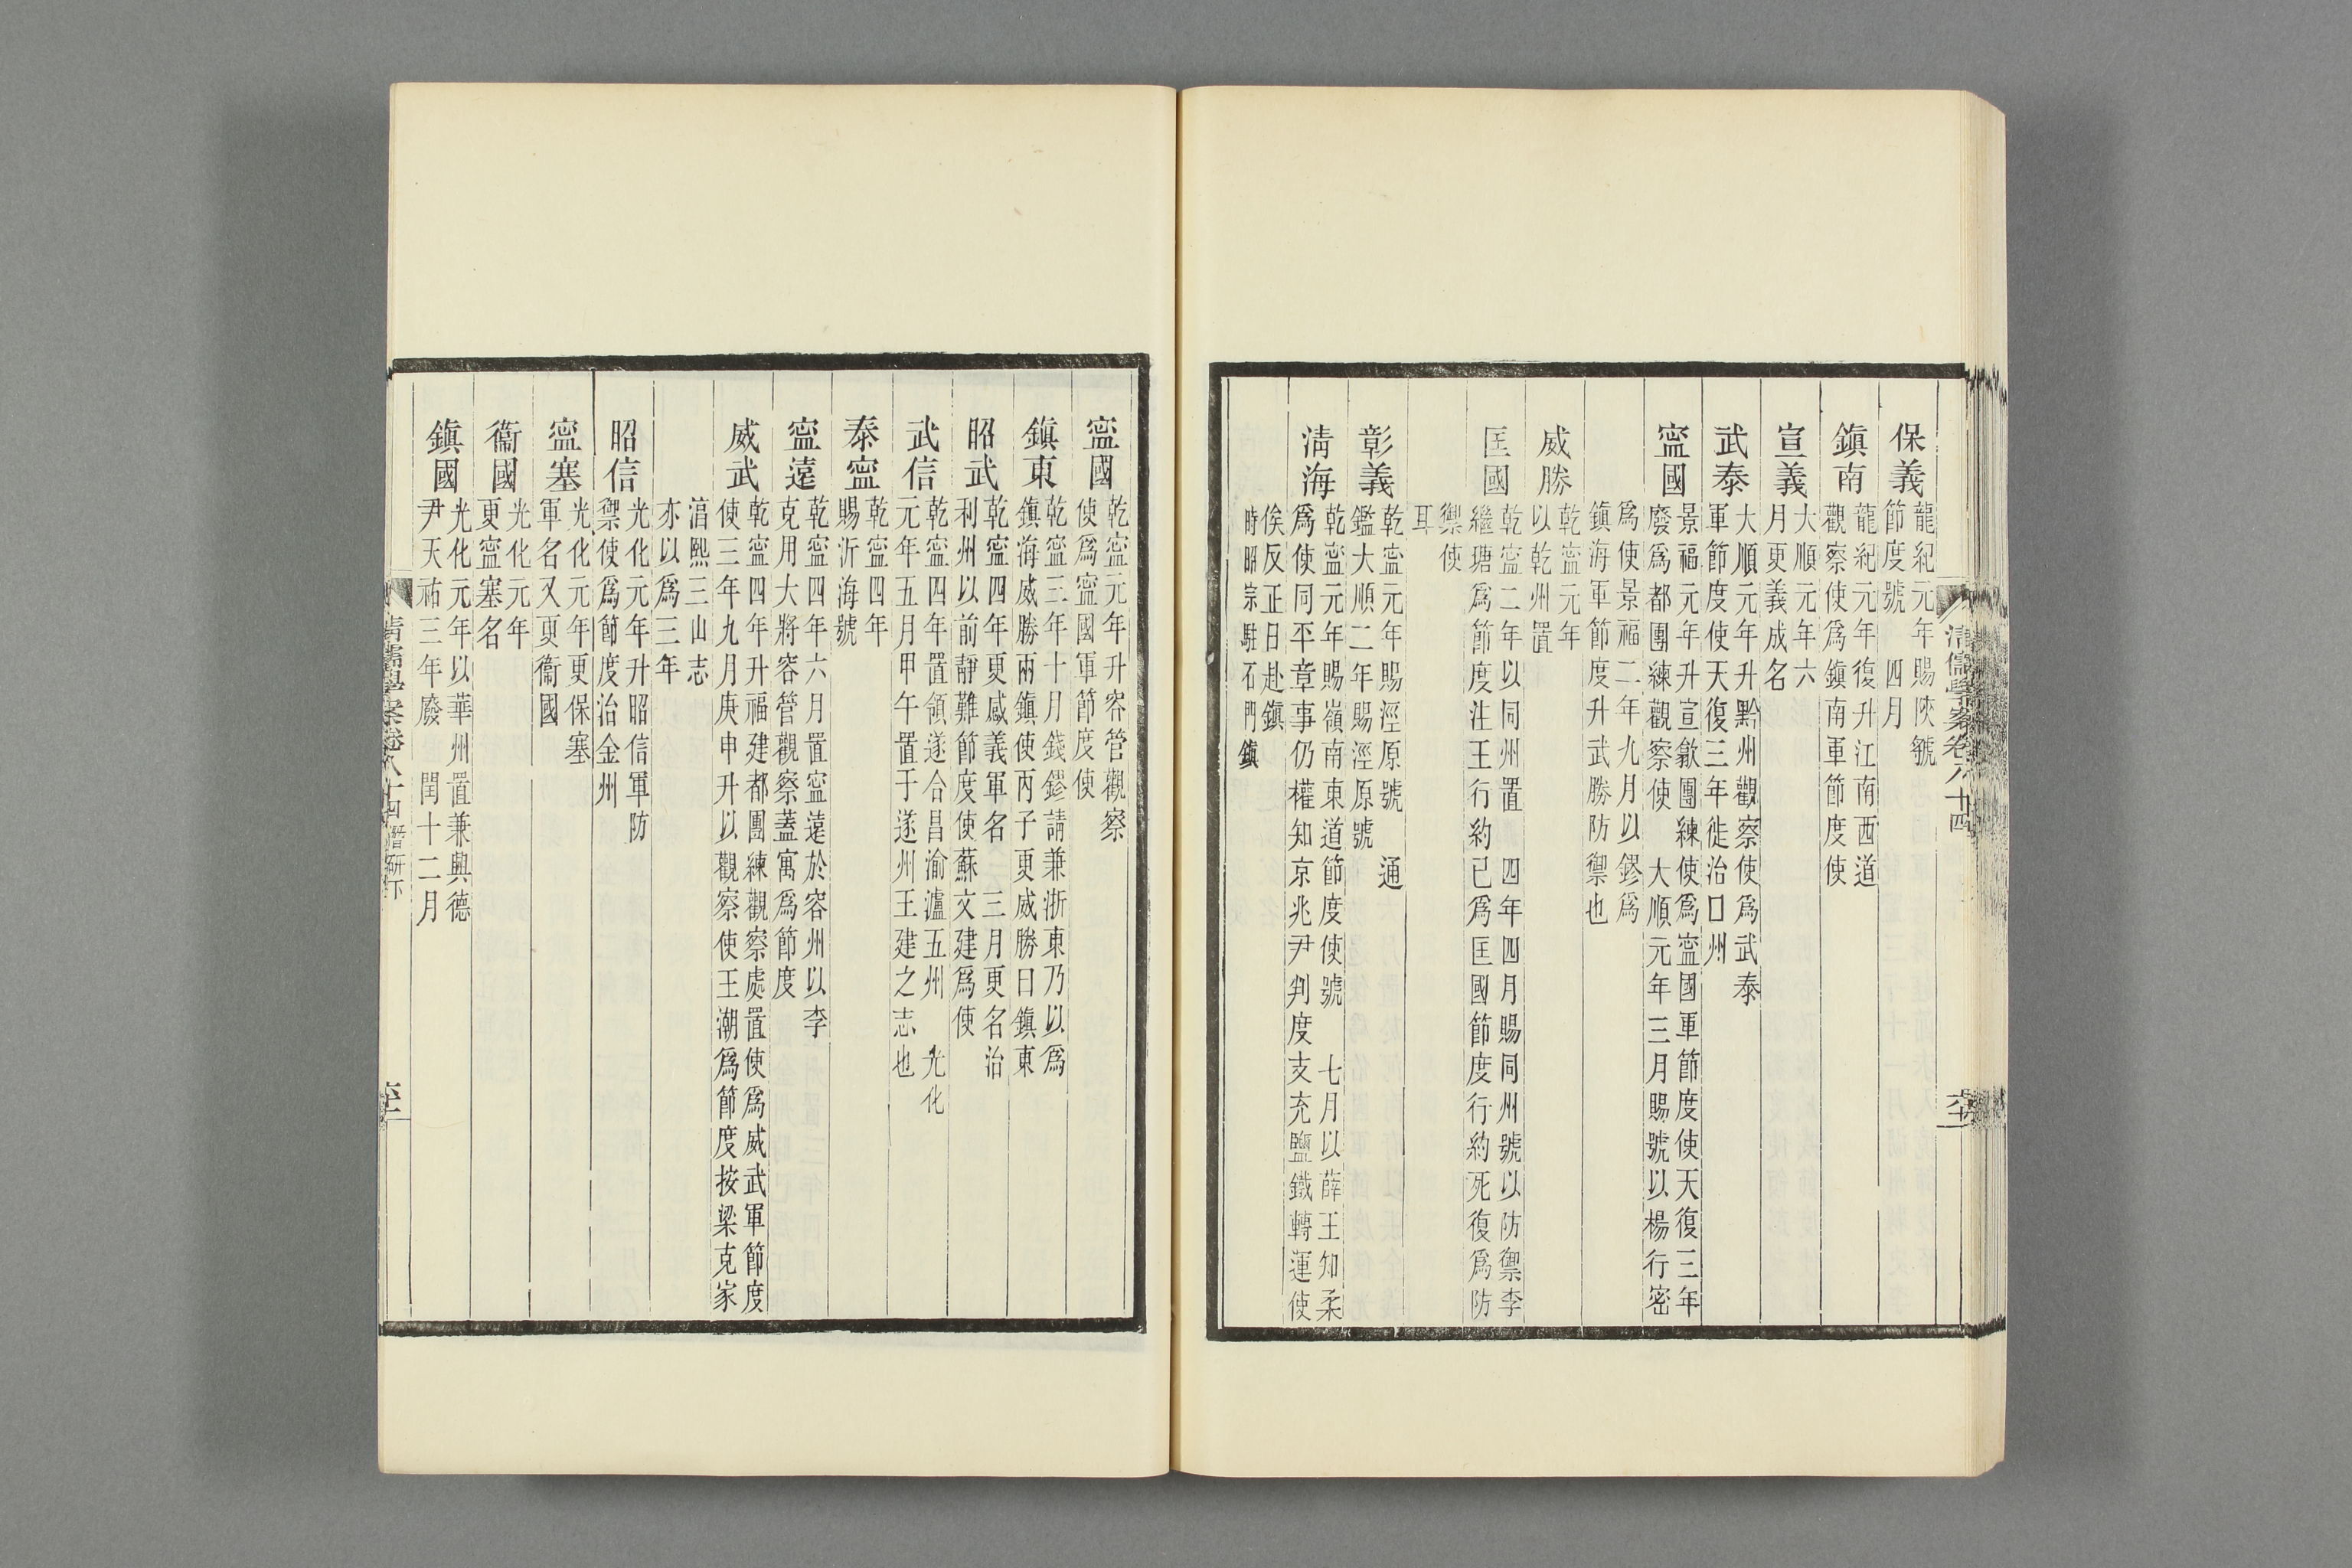 清儒學案卷八十四
六十
保義
龍紀元年賜陝虢
節度號　四月
鎭南
龍紀元年復升江南西道
觀察使爲鎭南軍節度使
宣義
大順元年六
月更義成名
武泰
大順元年升黔州觀察使爲武泰
軍節度使天復三年徙治□州
寍國
景福元年升宣歙團練使爲寍國軍節度使天復三年
廢爲都團練觀察使　大順元年三月賜號以楊行密
爲使景福二年九月以鏐爲
鎭海軍節度升武勝防禦也
威勝
乾寍元年
以乾州置
匡國
乾寍二年以同州置　四年四月賜同州號以防禦李
繼瑭爲節度注王行約已爲匡國節度行約死復爲防
禦使
耳
彰義
乾寍元年賜涇原號　通
鑑大順二年賜涇原號
淸海
乾寍元年賜嶺南東道節度使號　七月以薛王知柔
爲使同平章事仍權知京兆尹判度支充鹽鐵轉運使
俟反正日赴鎭
時昭宗駐石門鎭
寍國
乾寍元年升容管觀察
使爲寍國軍節度使
鎭東
乾寍三年十月錢鏐請兼浙東乃以爲
鎭海威勝兩鎭使丙子更威勝曰鎭東
昭武
乾寍四年更感義軍名　三月更名治
利州以前靜難節度使蘇文建爲使
武信
乾寍四年置領遂合昌渝瀘五州　光化
元年五月甲午置于遂州王建之志也
泰寍
乾寍四年
賜沂海號
寍遠
乾寍四年六月置寍遠於容州以李
克用大將容管觀察蓋寓爲節度
威武
乾寍四年升福建都團練觀察處置使爲威武軍節度
使三年九月庚申升以觀察使王潮爲節度按梁克家
淊熙三山志
亦以爲三年
昭信
光化元年升昭信軍防
禦使爲節度治金州
寍塞
光化元年更保塞
軍名又更衞國
衞國
光化元年
更寍塞名
鎭國
光化元年以華州置兼興德
尹天祐三年廢　閏十二月
清儒學案卷八十四
潛研下
六十一